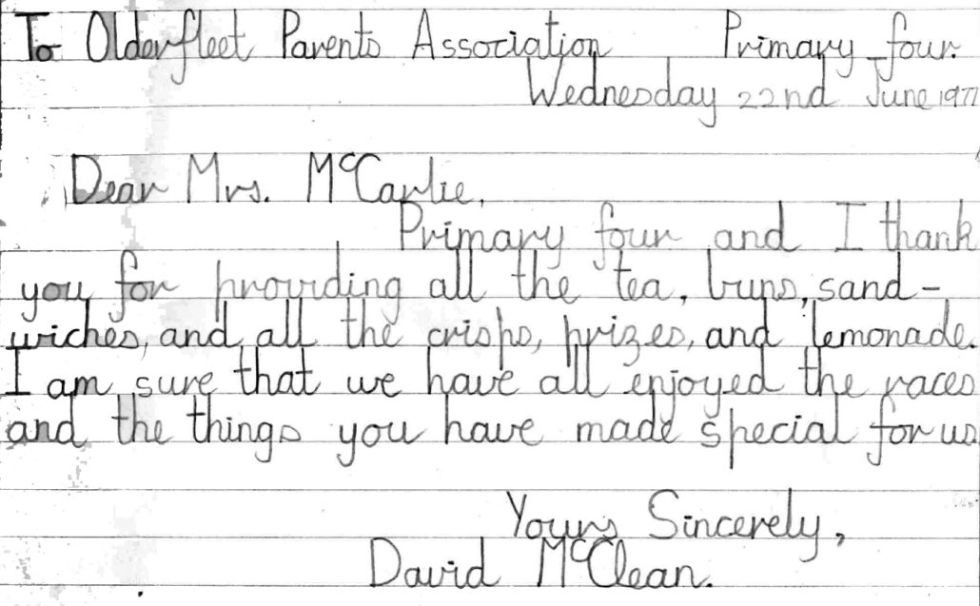 To Olderfleet Parents Association Primary four.
Wednesday 22nd June 1977
Dear Mrs. McCarlie,
Primary four and I thank
you for providing all the tea, buns, sand-
wiches, and all the crisps, prizes, and lemonade.
I am sure that we have all enjoyed the races
and the things you have made special for us
Yours Sincerely,
David McClean.